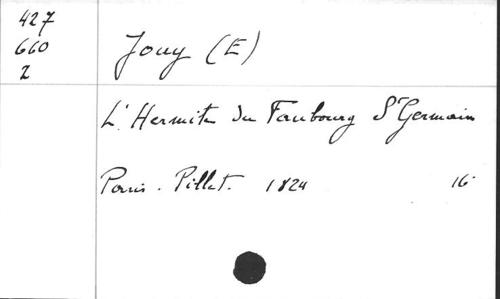 427
660
2
Jouy (E)
L'Hermite du Faubourg St Germain
Paris. Pillet. 1824 16°